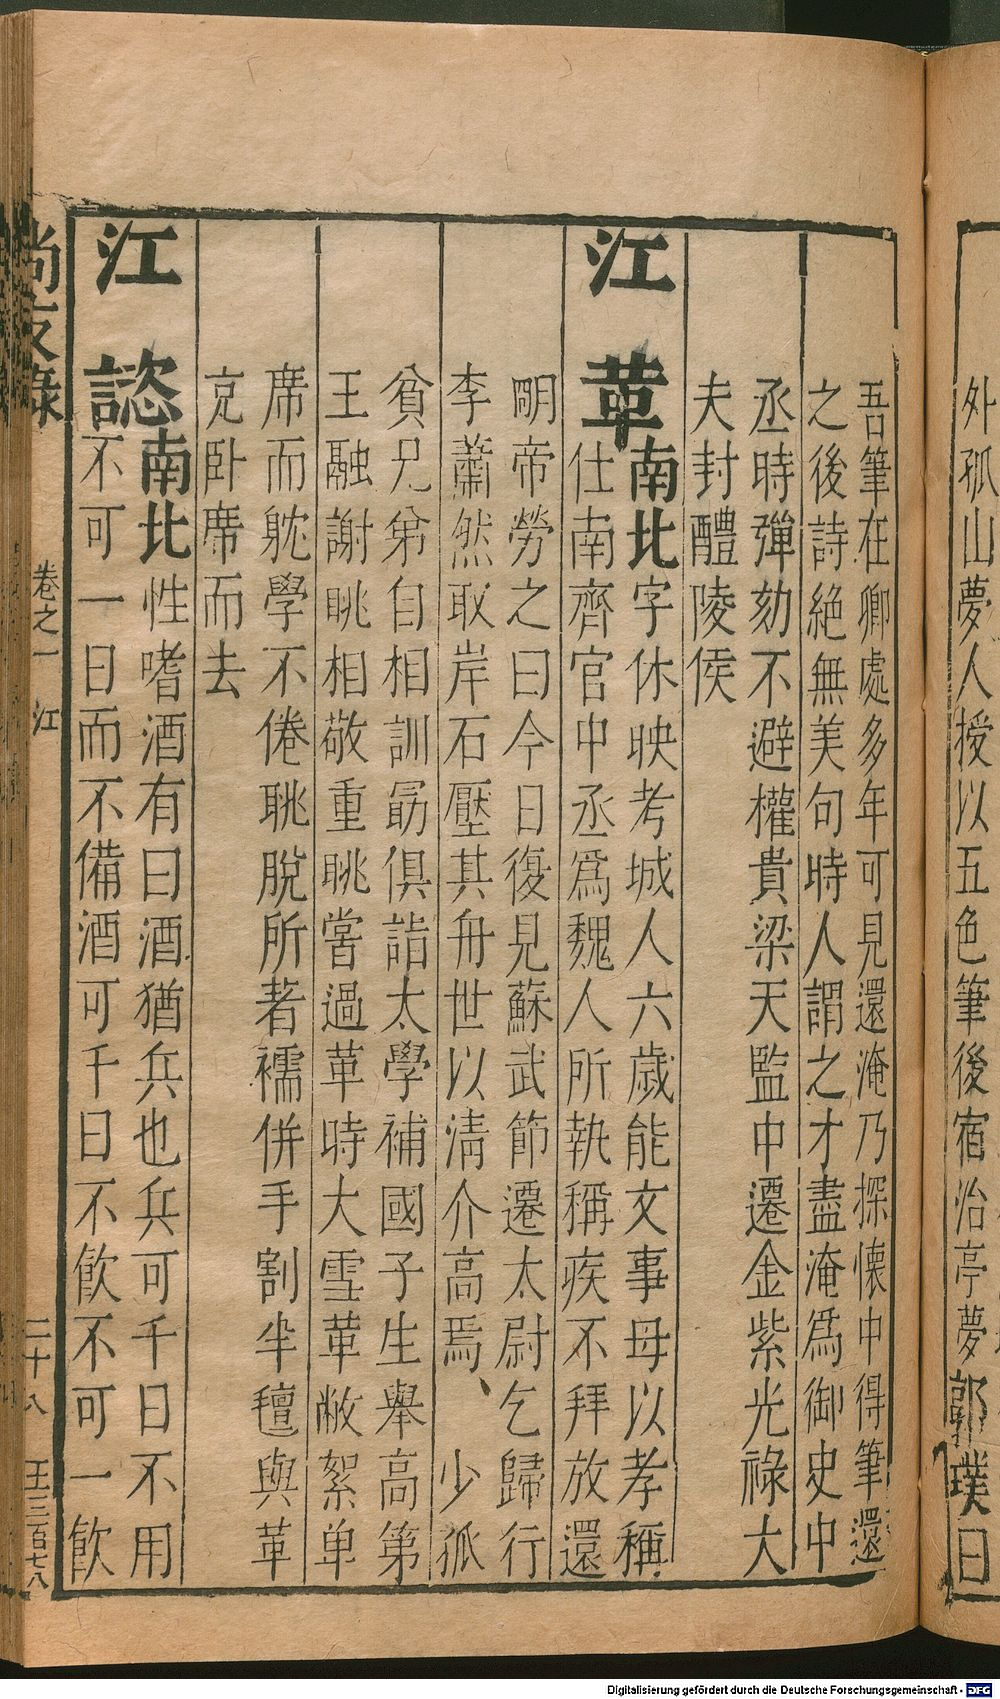 外孤山夢人授以五色筆後宿治亭夢郭璞曰
吾筆在卿處多年可見還淹乃探懷中得筆還
之後詩絕無美句時人謂之才盡淹爲御史中
丞時彈劾不避權貴梁天監中遷金紫光祿大
夫封醴陵侯
江革南北字休映考城人六歲能文事母以孝稱
仕南齊官中丞爲魏人所執稱疾不拜放還
明帝勞之曰今日復見蘇武節遷太尉乞歸行
李蕭然取岸石壓其舟世以清介高焉、少孤
貧兄弟自相訓勗俱詣太學補國子生舉高第
王融謝眺相敬重眺嘗過革時大雪革敝絮单
席而躭學不倦眺脫所著襦併手割半氊與革
充卧席而去
江諮南北性嗜酒有曰酒猶兵也兵可千日不用
不可一日而不備酒可千日不飲不可一飲
尚友錄
卷之一 江
二十八
王三百七八
Digitalisierung gefördert durch die Deutsche Forschungsgemeinschaft - DFG